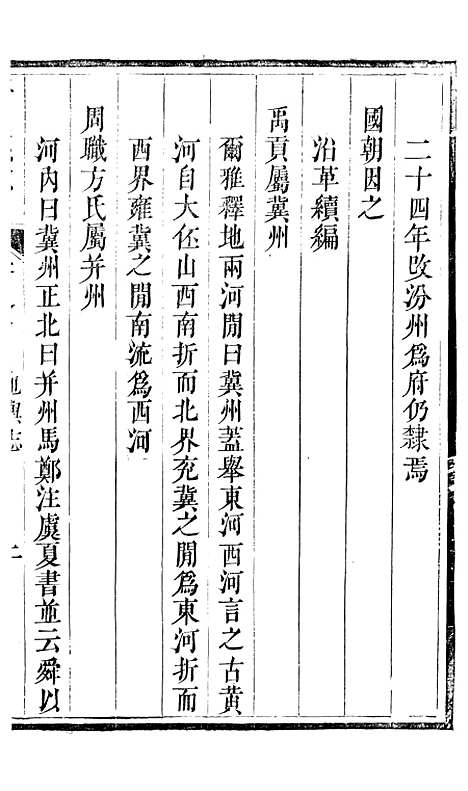 二十四年改汾州爲府仍隸焉
國朝因之
沿革續編
禹貢屬冀州
爾雅釋地兩河閒曰冀州蓋舉東河西河言之古黃
河自大伾山西南折而北界兖冀之閒爲東河折而
西界雍冀之閒南流爲西河
周職方氏屬并州
河內曰冀州正北曰并州馬鄭注虞夏書並云舜以
地輿志